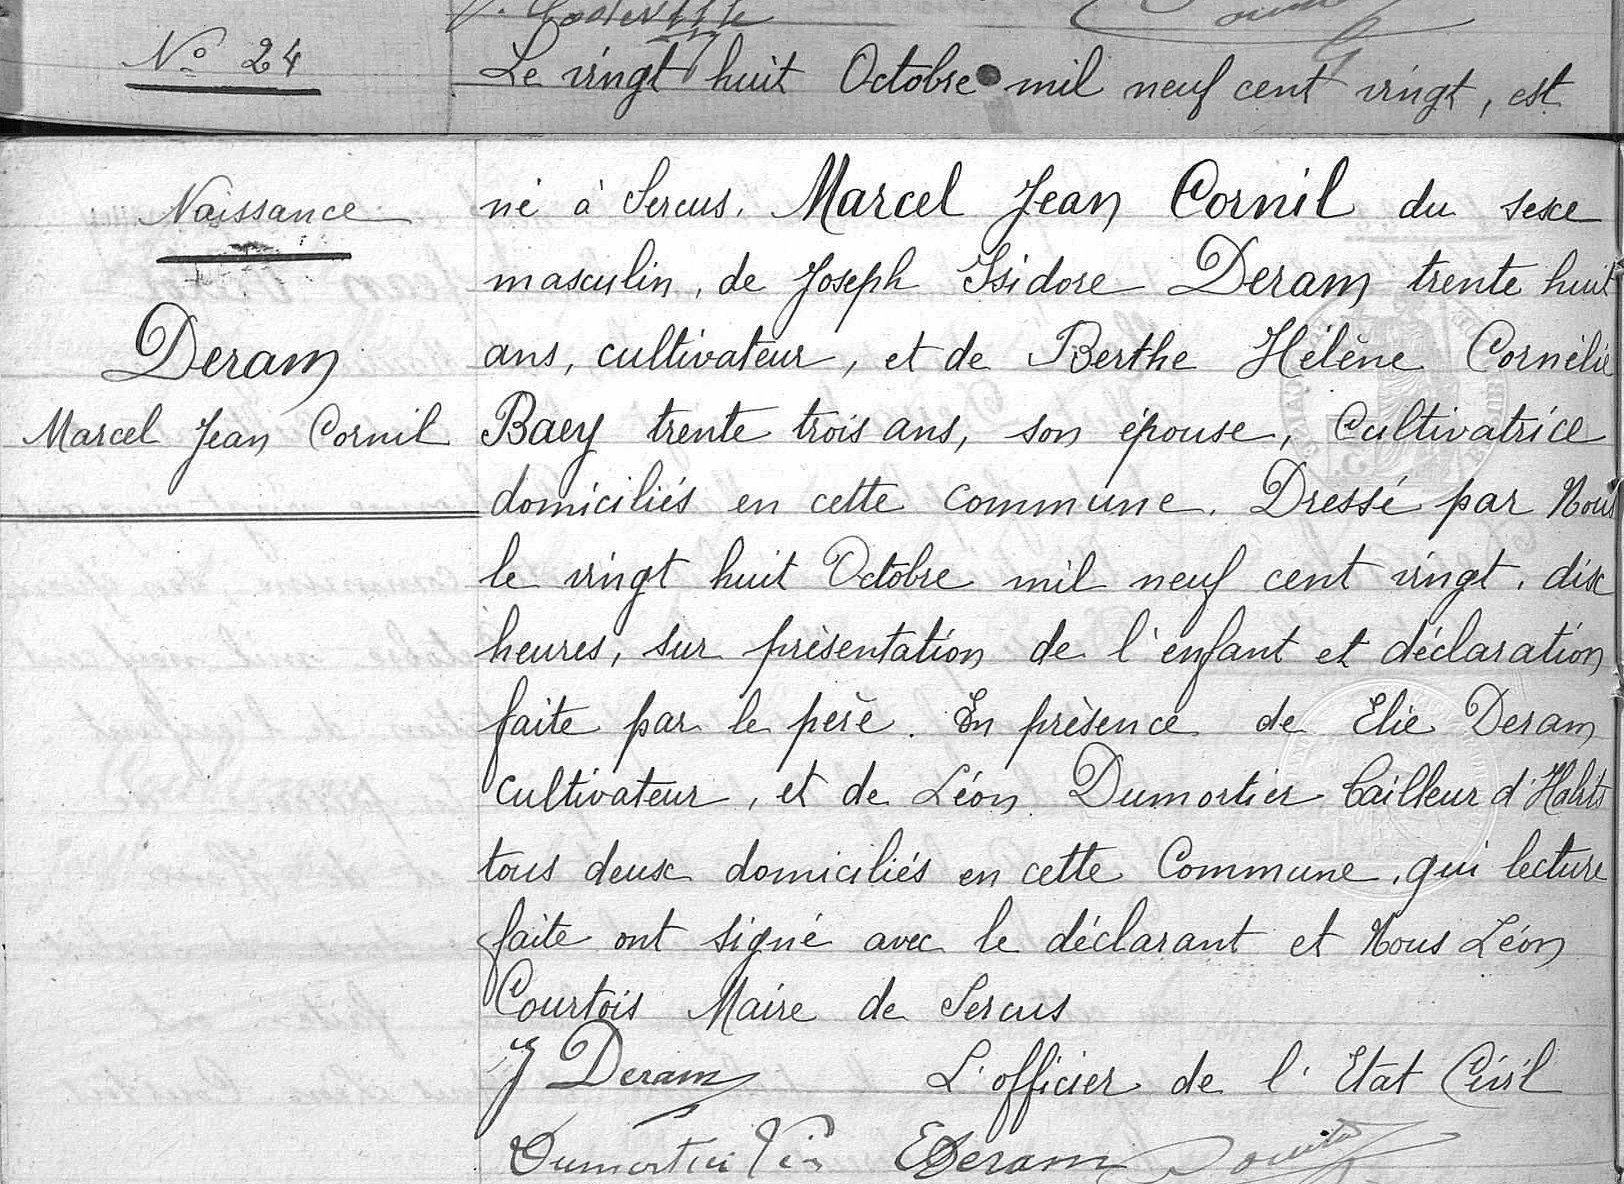 No 24
Le vingt huit Octobre mil neuf cent vingt, est
Naissance
Deram
Marcel Jean Cornil
né à Sercus, Marcel Jean Cornil du sexe
masculin, de Joseph Isidore Deram trente huit
ans, cultivateur, et de Berthe Hélène Cornélie
Baey trente trois ans, son épouse, Cultivatrice
domiciliés en cette commune. Dressé par Nous
le vingt huit Octobre mil neuf cent vingt, dix
heures, sur présentation de l'enfant et déclaration
faite par le père. En présence de Elie Deram
cultivateur, et de Léon Dumortier Tailleur d'Habits
tous deux domiciliés en cette Commune, qui lecture
faite ont signé avec le déclarant et Nous Léon
Courtois Maire de Sercus
J Deram L'officier de l'Etat Civil
Dumortier E Deram